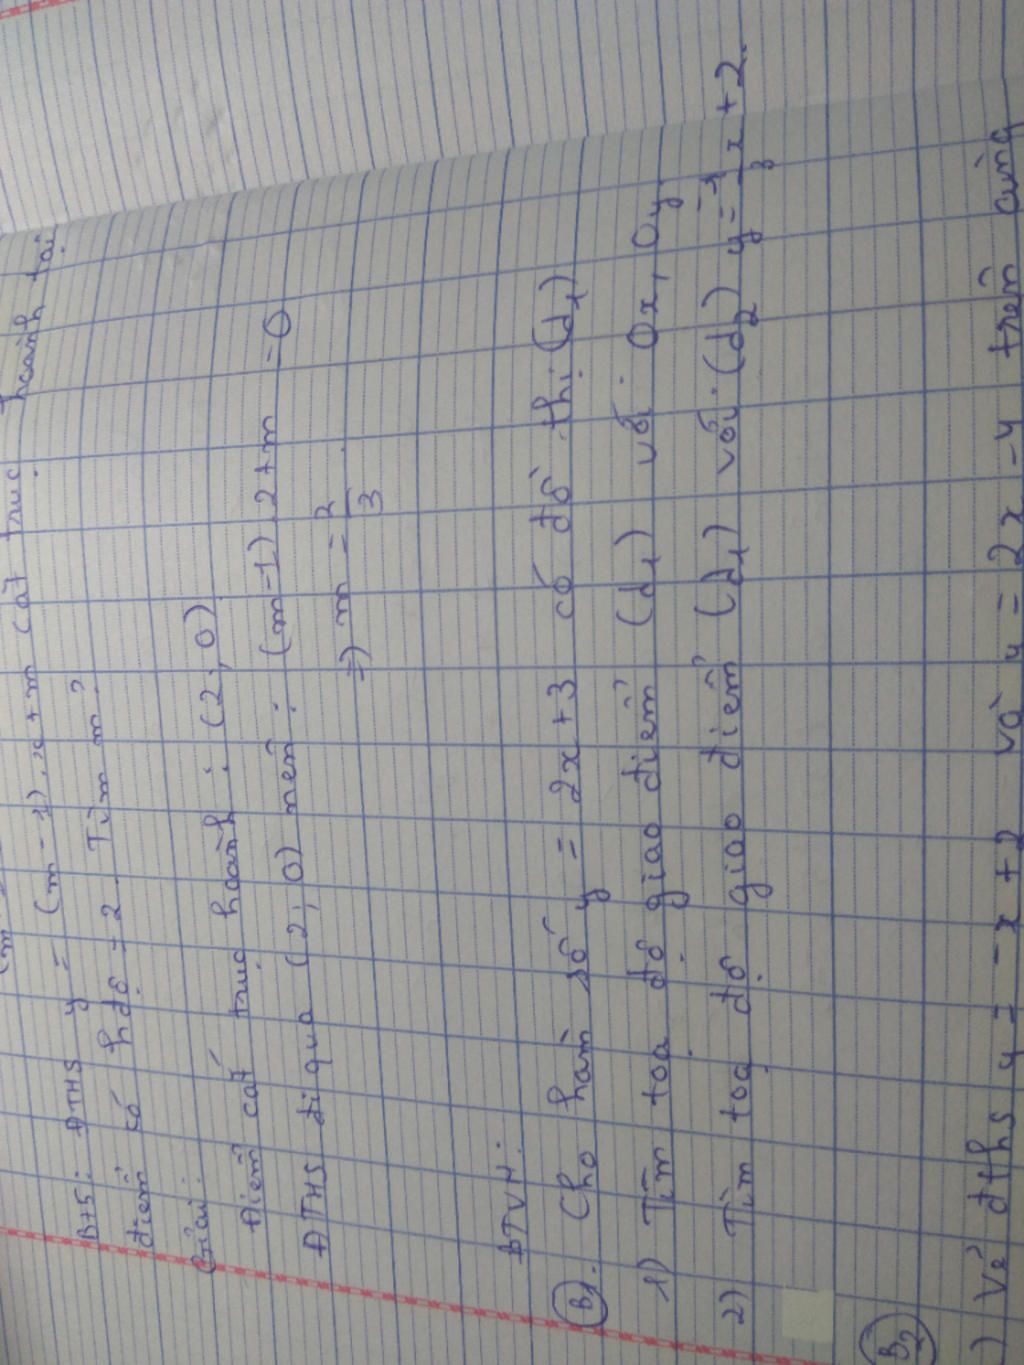 BT5: ĐTHS y = (m-1).x+m cắt trục hoành tại
điểm có hđộ = 2. Tìm m?
Giải:
Điểm cắt trục hoành: (2; 0)
ĐTHS đi qua (2; 0) nên: (m-1).2+m=0
=) m = 2/3
BTVN:
B1. Cho hàm số y = 2x+3 có đồ thị (d1)
1) Tìm toạ độ giao điểm (d1) với Ox, Oy
2) Tìm toạ độ giao điểm (d1) với (d2) y = -1/3 x + 2.
B2
) Vẽ đths y = -x+2 và y = 2x-4 trên cùng